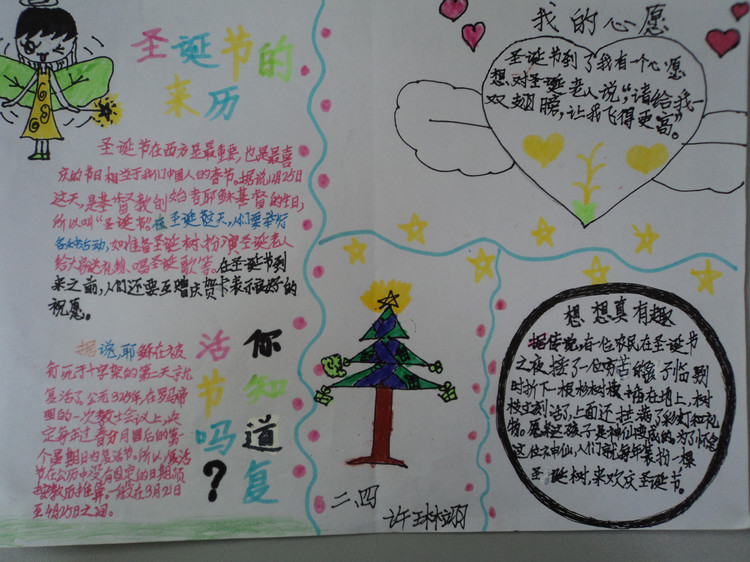 圣诞节的
来历
圣诞节在西方是最重要,也是最喜
庆的节日相当于我们中国人的春节。据说12月25日
这天,是基督教创始者耶稣基督的生日,
所以叫“圣诞节。在圣诞这天,人们要举行
各如活动,如准备圣诞树、扮演圣诞老人
给大家送礼物、唱圣诞歌等。在圣诞节到
来之前,人们还要互赠庆贺卡表示良好的
祝愿。
你知道复
活节吗?
据说,耶稣在被
钉死于十字架的第三天就
复活了公元325年在罗马帝
国的一次教士会议上,决
定每年过春分月圆后的第一
个星期日为复活节。所以,复活
节在公历中没有固定的日期须
按教历推算。一般在3月21日
至4月25日之间。
我的心愿
圣诞节到了我有一个心愿
想对圣诞老人说,“请给我一
双翅膀,让我飞得更高”。
想想真有趣
据传说,有一位农民在圣诞节
之夜接了一位穷苦的孩子临别
时折下一根杉树枝插在地上,树
枝立刻活了,上面还挂满了彩灯和礼
物。原来这孩子是神仙变成的,为了怀念
这位神仙,人们就每年装扮一棵
圣诞树,来欢庆圣诞节。
二.四
许琳翊